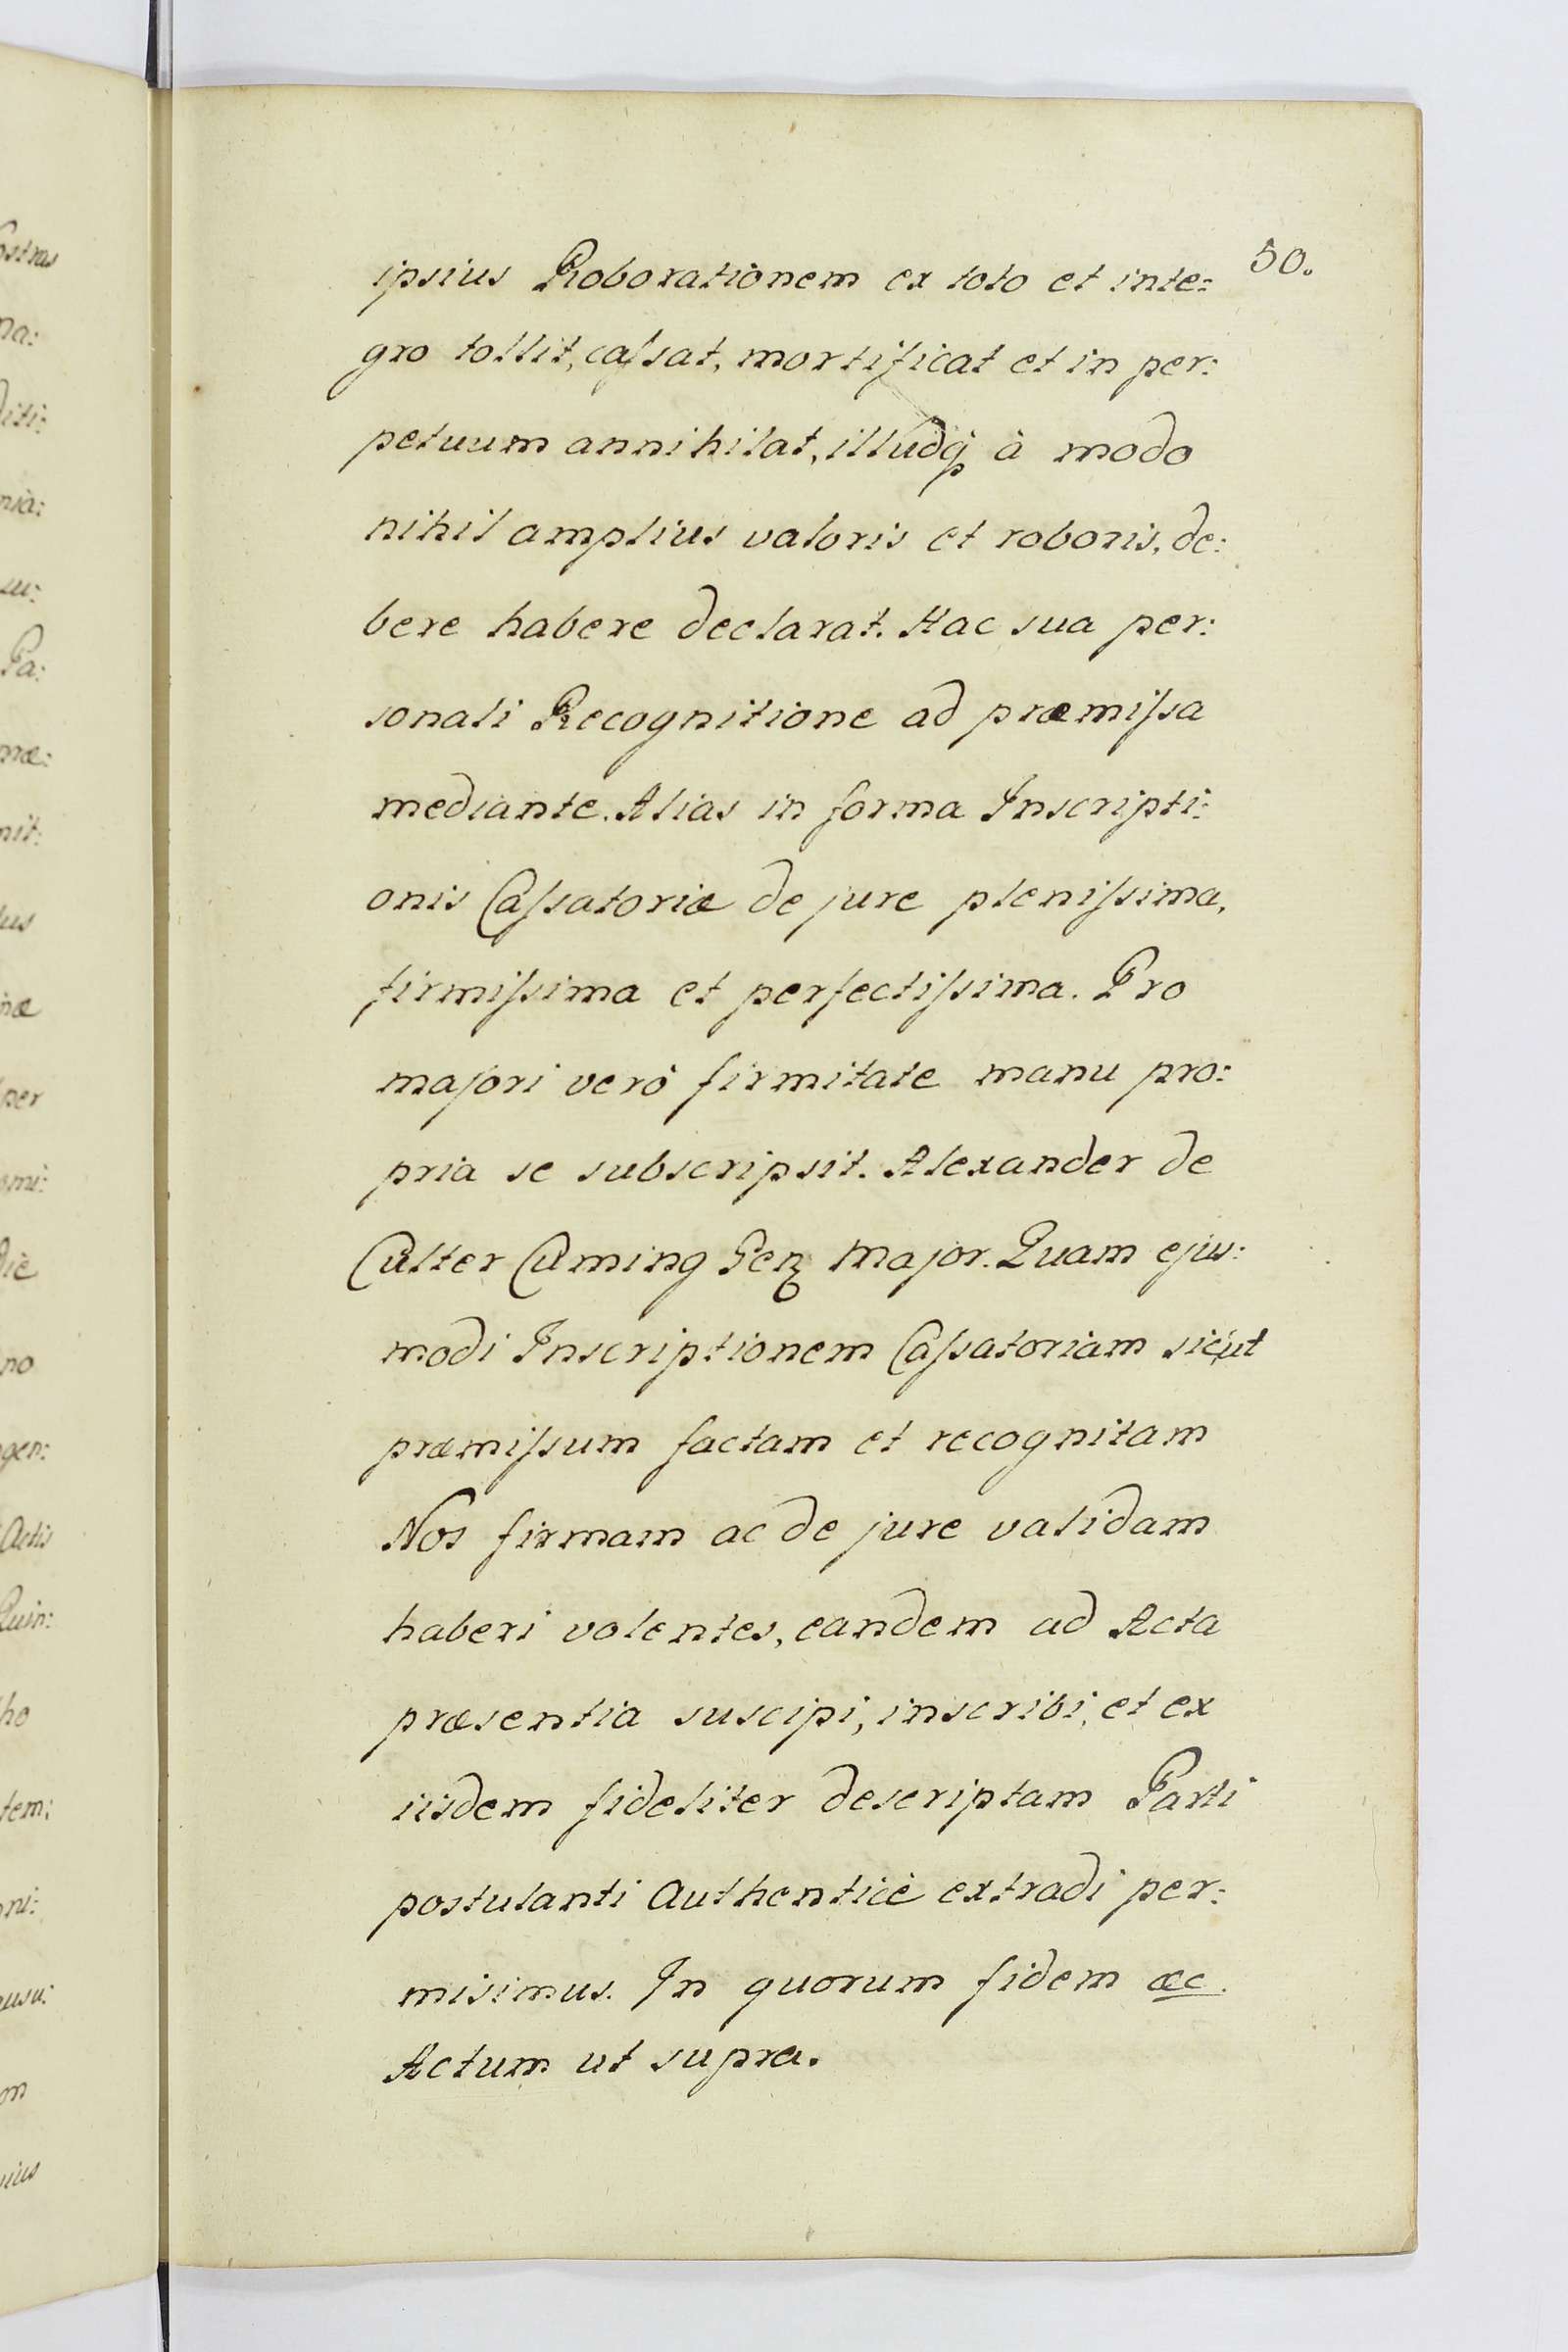 50.
ipsius Roborationem ex toto et inte:
gro tollit, caſsat, mortificat et in per:
petuum annihilat, illudq̃ à modo
nihil amplius valoris et roboris, de:
bere habere declarat. Hac sua per:
sonali Recognitione ad præmiſsa
mediante. Alias in forma Inscripti:
onis Caſsatoriæ de jure pleniſsima,
firmiſsima et perfectiſsima. Pro
majori verò firmitate manu pro:
pria se subscripsit. Alexander de
Culter Cuming Gen Major. Quam ejus:
modi Inscriptionem Caſsatoriam sicut
præmiſsum factam et recognitam
Nos firmam ac de jure validam
haberi volentes, eandem ad Acta
præsentia suscipi, inscribi, et ex
iisdem fideliter descriptam Parti
postulanti Authenticè extradi per:
misimus. In quorum fidem &c.
Actum ut supra.